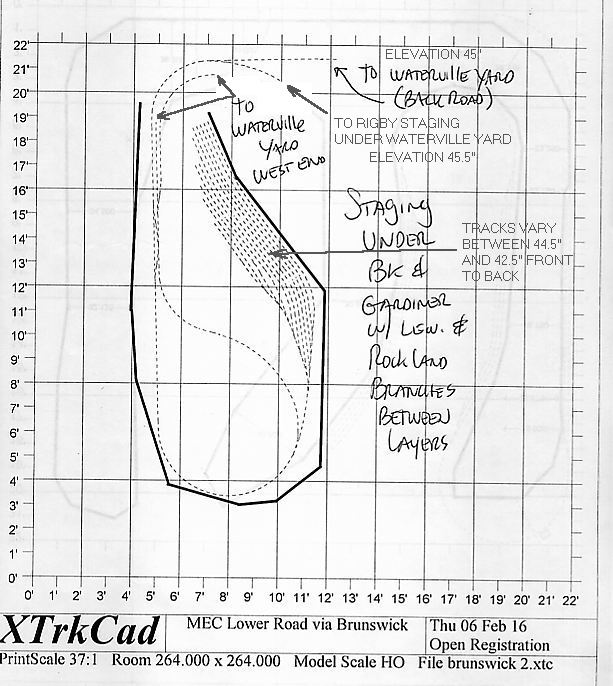 ELEVATION 45"
TO WATERVILLE YARD
(BACK ROAD)
TO
WATERVILLE
YARD
WEST END
TO RIGBY STAGING
UNDER WATERVILLE YARD
ELEVATION 45.5"
STAGING
UNDER
BK &
GARDINER
W/ LEW. &
ROCKLAND
BRANCHES
BETWEEN
LAYERS
TRACKS VARY
BETWEEN 44.5"
AND 42.5" FRONT
TO BACK
22'
21'
20'
19'
18'
17'
16'
15'
14'
13'
12'
11'
10'
9'
8'
7'
6'
5'
4'
3'
2'
1'
0'
0' 1' 2' 3' 4' 5' 6' 7' 8' 9' 10' 11' 12' 13' 14' 15' 16' 17' 18' 19' 20' 21' 22'
XTrkCad
MEC Lower Road via Brunswick
Thu 06 Feb 16
Open Registration
PrintScale 37:1 Room 264.000 x 264.000 Model Scale HO File brunswick 2.xtc